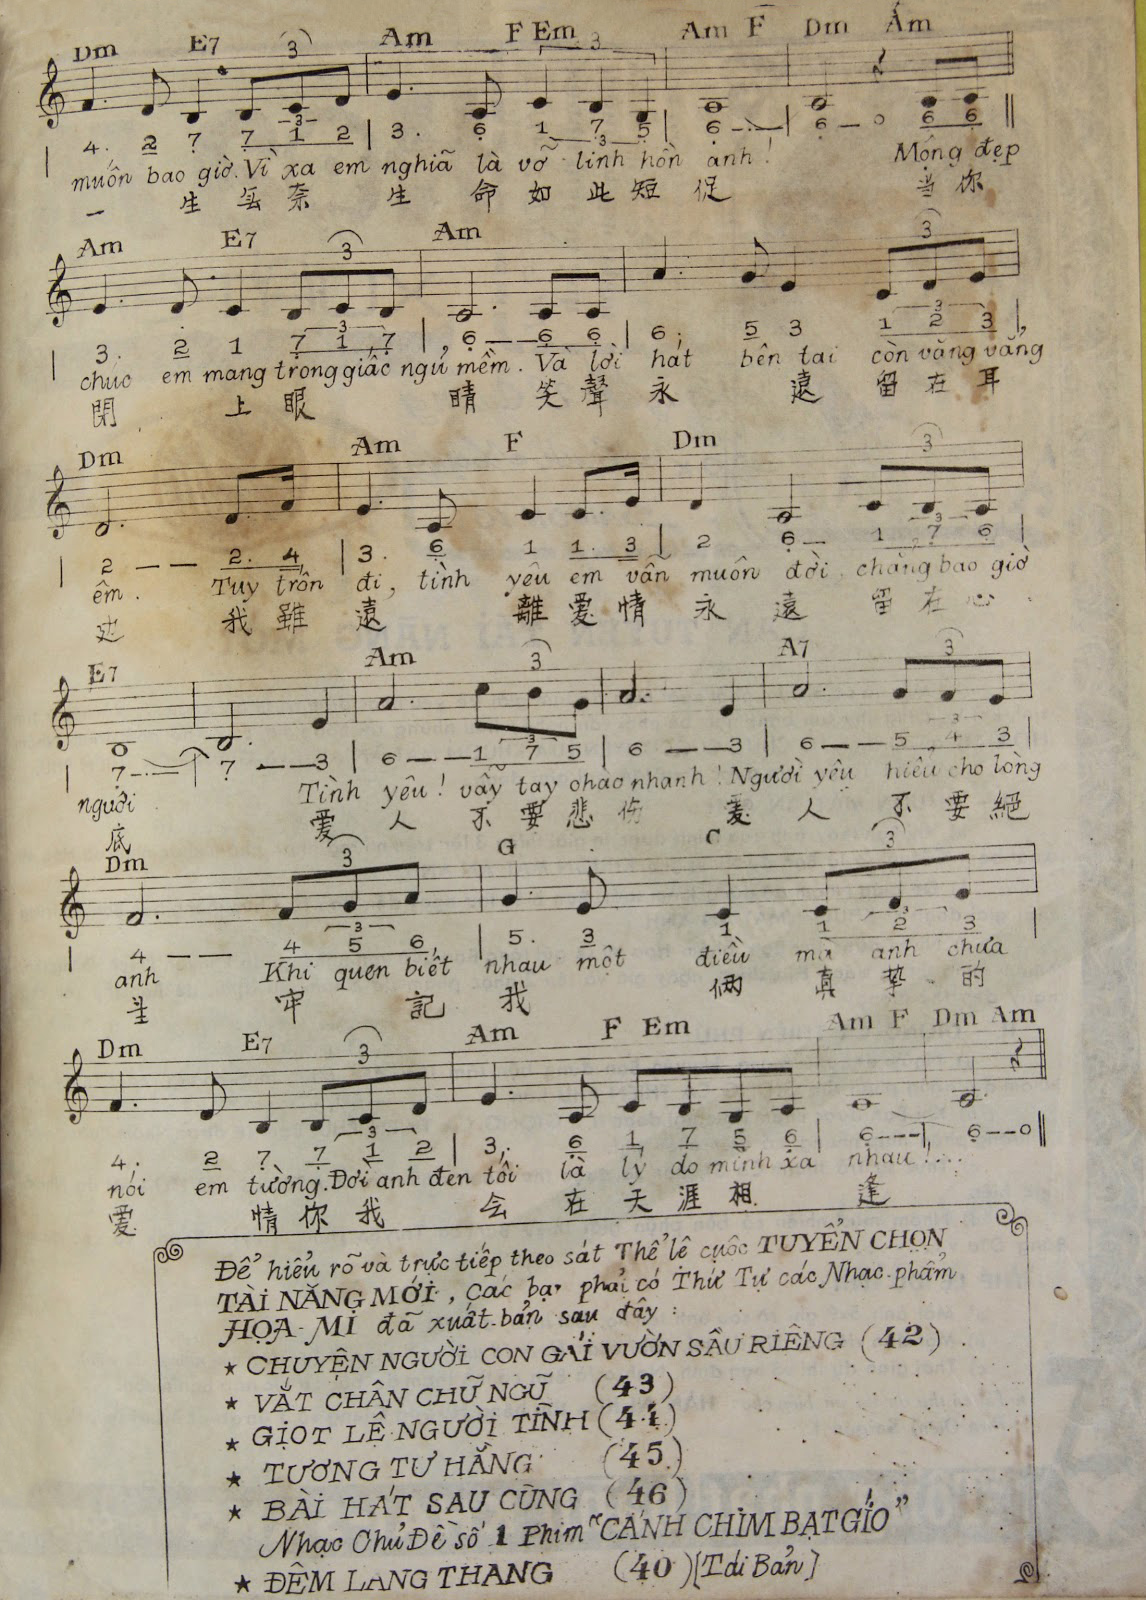 Dm E7 3 Am F Em 3 Am F Dm Am
4. 2 7 7 1 2 | 3. 6 1 7 5 | 6 - . - | 6 - - 0 6 6 ||
muốn bao giờ. Vì xa em nghĩa là vỡ linh hồn anh! Mộng đẹp
一 生 奈 生 命 如 此 短 促 当 你
Am E7 3 Am 3
3. 2 1 7 1 7 | 6 - - 6 6 | 6. 5 3 1 2 3 |
chúc em mang trong giấc ngủ mềm. Và lời hát bên tai còn văng vẳng
閉 上 眼 睛 笑 聲 永 遠 留 在 耳
Dm Am F Dm 3
2 - - 2. 4 | 3. 6 1 1. 3 | 2 6 - 1 7 6 |
êm. Tuy trốn đi, tình yêu em vẫn muôn đời, chẳng bao giờ
边 我 雖 遠 離 爱 情 永 遠 留 在 心
E7 Am 3 A7 3
7 - . - | 7 - - 3 | 6 - - 1 7 5 | 6 - - 3 | 6 - - 5 4 3 |
người Tình yêu! vẫy tay chào nhanh! Người yêu hiểu cho lòng
底 爱 人 不 要 悲 伤 爱 人 不 要 絕
Dm 3 G C 3
4 - - 4 5 6 | 5. 3 1 1 2 3 |
anh Khi quen biết nhau một điều mà anh chưa
望 牢 記 我 倆 真 挚 的
Dm E7 3 Am F Em Am F Dm Am
4. 2 7 7 1 2 | 3. 6 1 7 5 6 | 6 - - - | 6 - - 0 ||
nói em tường. Đời anh đen tối là lý do mình xa nhau!...
爱 情 你 我 会 在 天 涯 相 逢
Để hiểu rõ và trực tiếp theo sát Thể lệ cuộc TUYỂN CHỌN
TÀI NĂNG MỚI, các bạn phải có Thứ Tự các Nhạc phẩm
HỌA-MI đã xuất-bản sau đây:
★ CHUYỆN NGƯỜI CON GÁI VƯỜN SẦU RIÊNG (42)
★ VẮT CHÂN CHỮ NGŨ (43)
★ GIỌT LỆ NGƯỜI TÌNH (44)
★ TƯƠNG TƯ HẰNG (45)
★ BÀI HÁT SAU CÙNG (46)
Nhạc Chủ Đề số 1 Phim "CÁNH CHIM BẠT GIÓ"
★ ĐÊM LANG THANG (40) [Tái Bản]